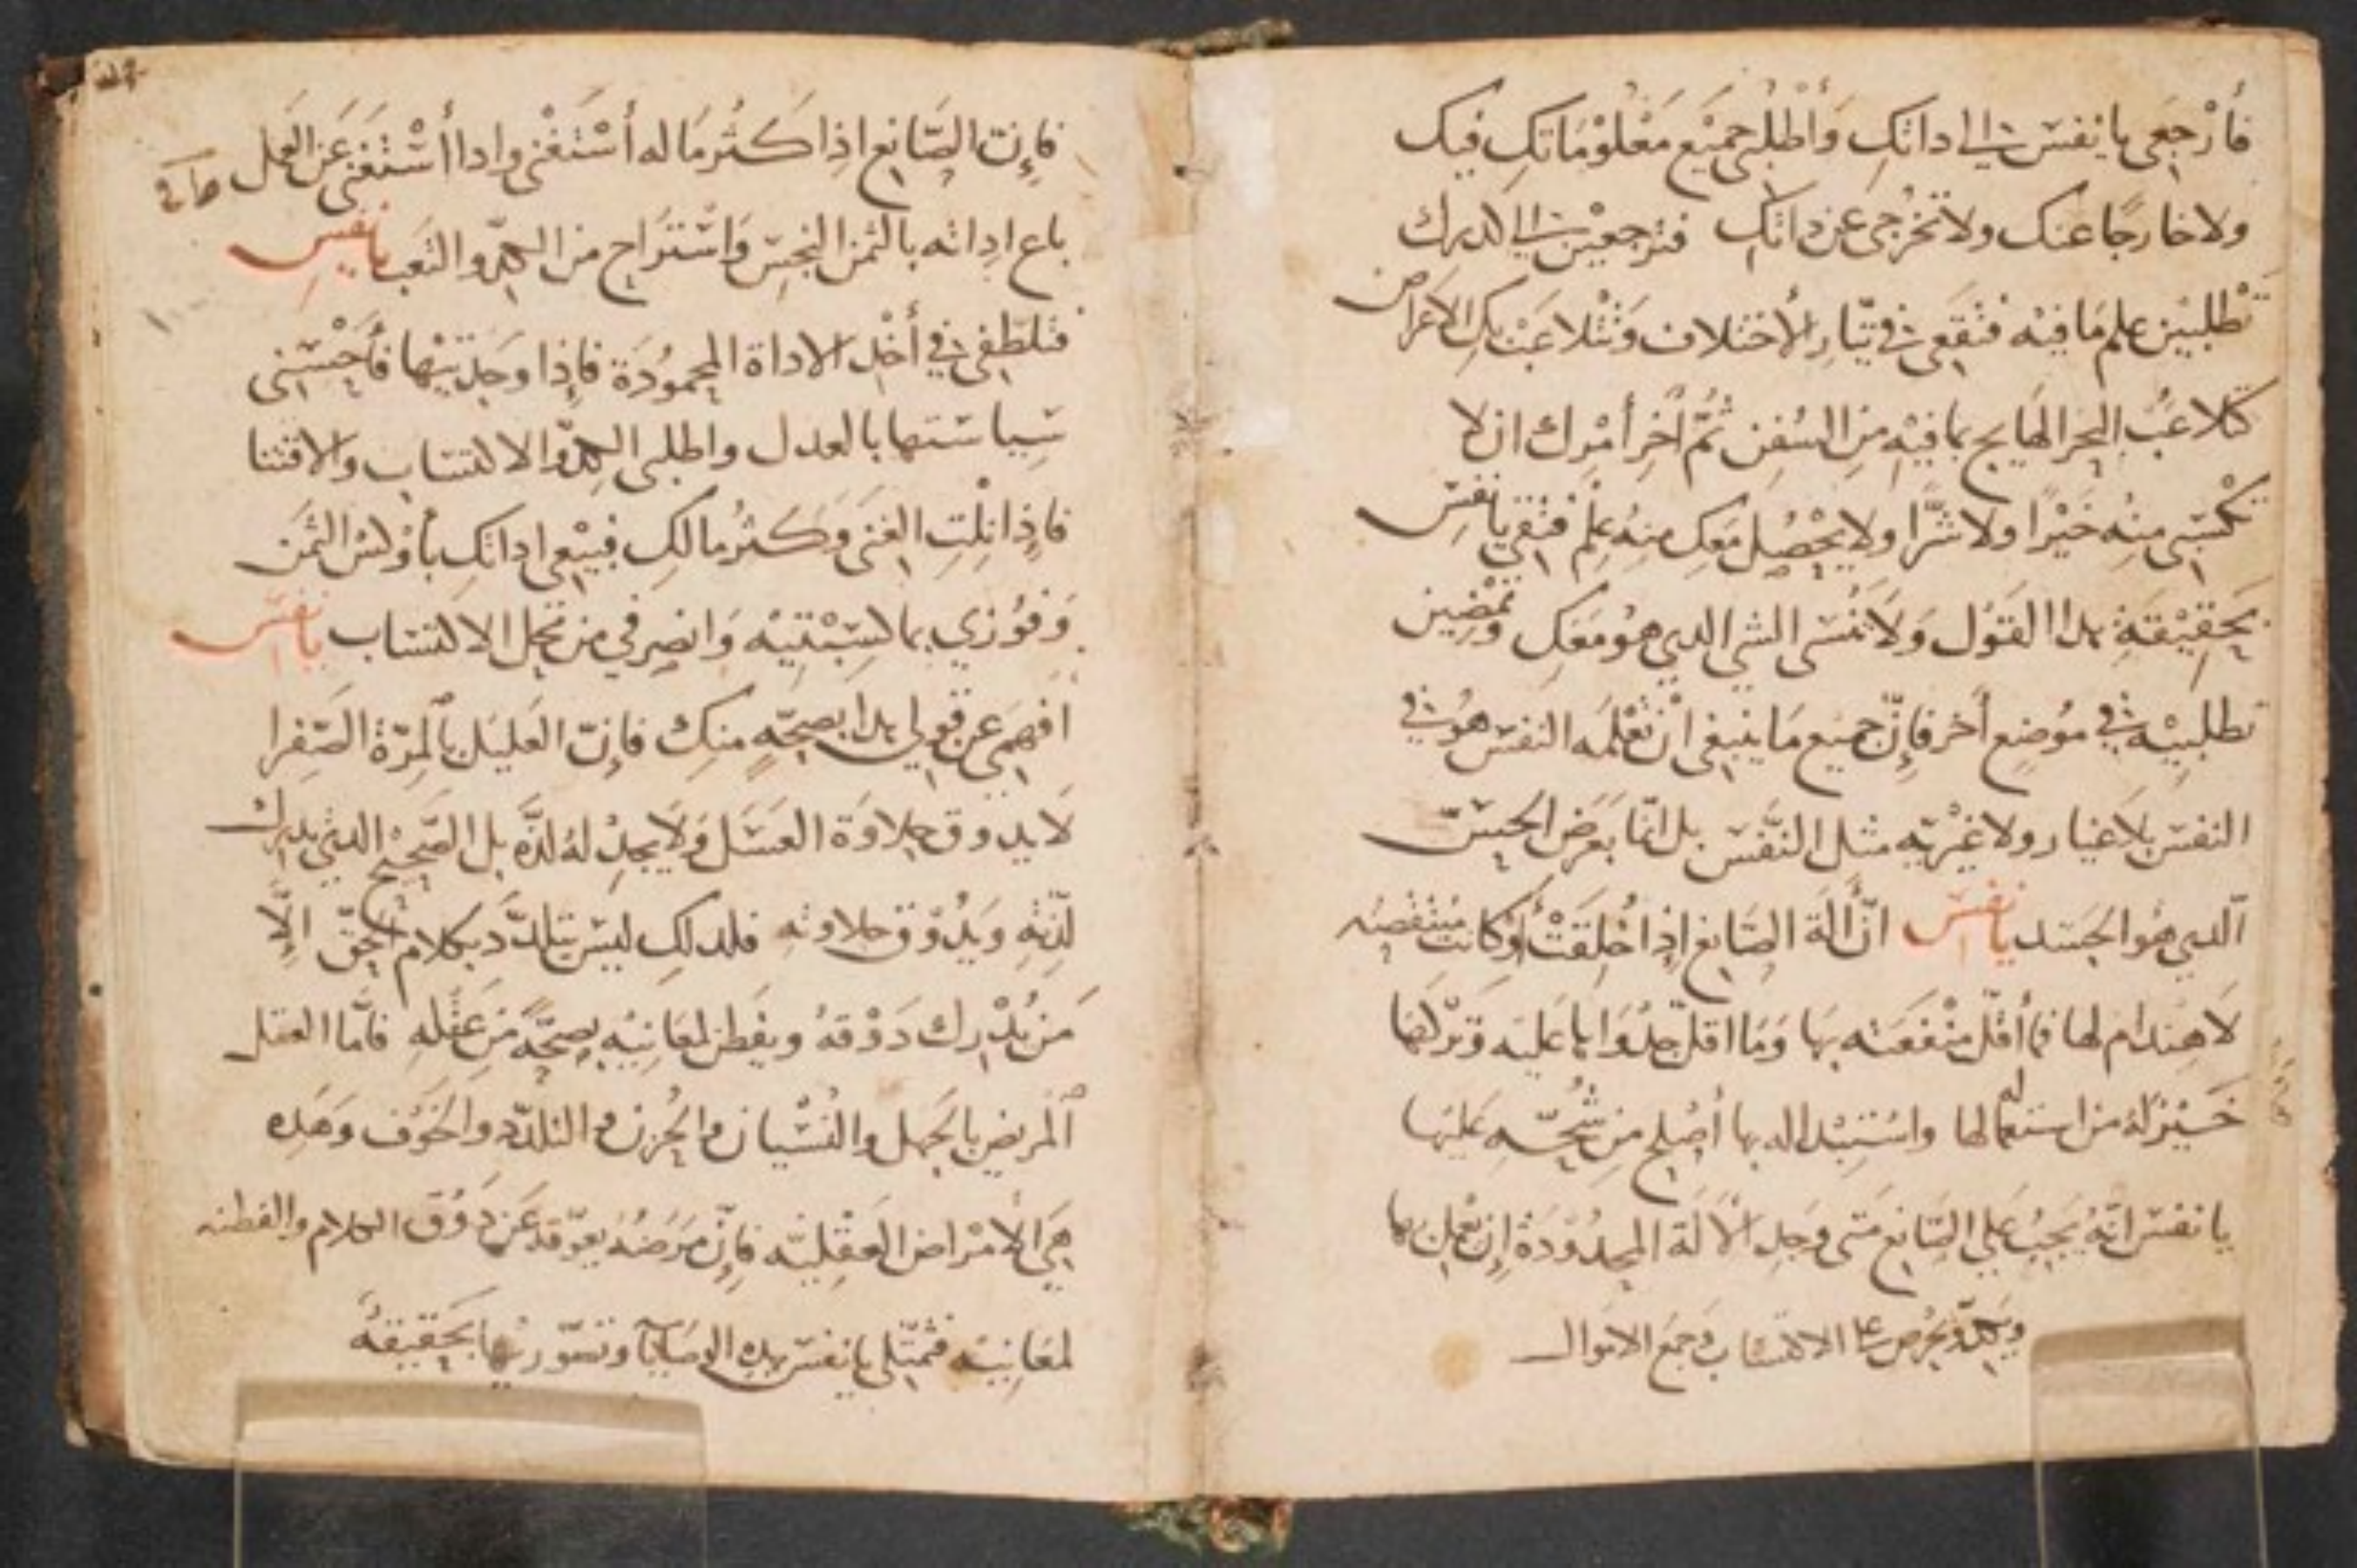 فأرْجِعى يا نفس الى اداتكِ وَأطْلُبى جميْع مَعْلوْمَاتكِ فيكِ
ولا خارجًا عنكِ ولا تخْرُجى عن داتكِ فترجعين الى الدىرك
تطْلبيْن علم مَا فيْه فتقَعى في تيّار الأختلاف وَتتْلاعَبْ بكِ الأعراض
كتلاعُب البحر الهَايج بما فيْهِ مِن السُفن ثمّ أخر أمْرك ان لا
تكْسَبى منهُ خيْرًا ولا شرًّا ولا يحْصُل معَكِ منهُ علِمْ فتقى يا نفس
بحقيْقةِ هدا القوَل وَلا تنسَى الشى الدي هوُ معَكِ وتمْضِين
تطلبيْه في موْضع أخر فإنّ جميَع مَا ينبغى انْ تعْلمَه النفس هوُ في
النفس بلا غيار ولا غيْريّه مثل النّفس بل انما بعَرَض الحِسّ
الدي هوُ الجسَد يا نفس انّ ألة الصَانع اذا خُلِقَتْ أوْ كانت منْتقصَه
لا هِندام لها فما أقلّ منْفعَته بهَا وَمَا اقلّ جدْوَاها عليَه وَترْكهَا
خيْر لهُ من استعمالها واسْتِبْداله بها أصْلح مِن شُحّهِ عليَها
يا نفس انهُ يجبُ على الصَانع مَتى وَجد الألة المحدُوْدَة إن يعْمل بها
ويكدّ ويحْرُص على الاكتسَاب وَجمع الاموال
فإنّ الصَّانع اذا كثُر مَا له أسْتَغنْى وادا أسْتغنَى عَن العَمل
باع اداته بالثمن البخس وَاسْترَاح من الكدّ والتعَب يا نفس
فتلطّفى في أخْد الاداة المحموُدَة فإذا وَجدتيْها فأحسْنى
سِياسَتها بالعدل واطلبى الكدّ والاكتسَاب والاقتنا
فإذا نِلتِ الغنَى وَكثُر مالكِ فبيْعى اداتكِ بأوْكس الثمن
وَفوُزي بما كسَبْتيْه وَانصرفي من محَل الاكتسَاب يا نفس
أفهَمى عن قولى هدا بصحّةٍ منكِ فإنّ العَليَل بالمرّة الصَفرا
لا يدوق حلاوَة العسَل وَلا يجدْ لهُ لذّه بل الصّحيْح الدي يدرك
لذّتهِ وَيدُوْق حلاوته فلدلكِ ليس يتلدّد بكلام الحَقّ الّا
مَن يدْرك دَوْقهُ ويفطن لمعَانيْه بصحّةٍ مَن عَقلهِ فأمّا العقل
المريض بالجَهل والنسْيان والحُزن والتلدّد والخوَف وَهَده
هَى الأمْراض العَقليّه فإنّ مرَضهُ يعوّقه عَن دَوْق الكلام والفطنه
لمعَانيه فتمثّلى يا نفس بهده الوصَايا وتصَوّريْها بحَقيقهُ